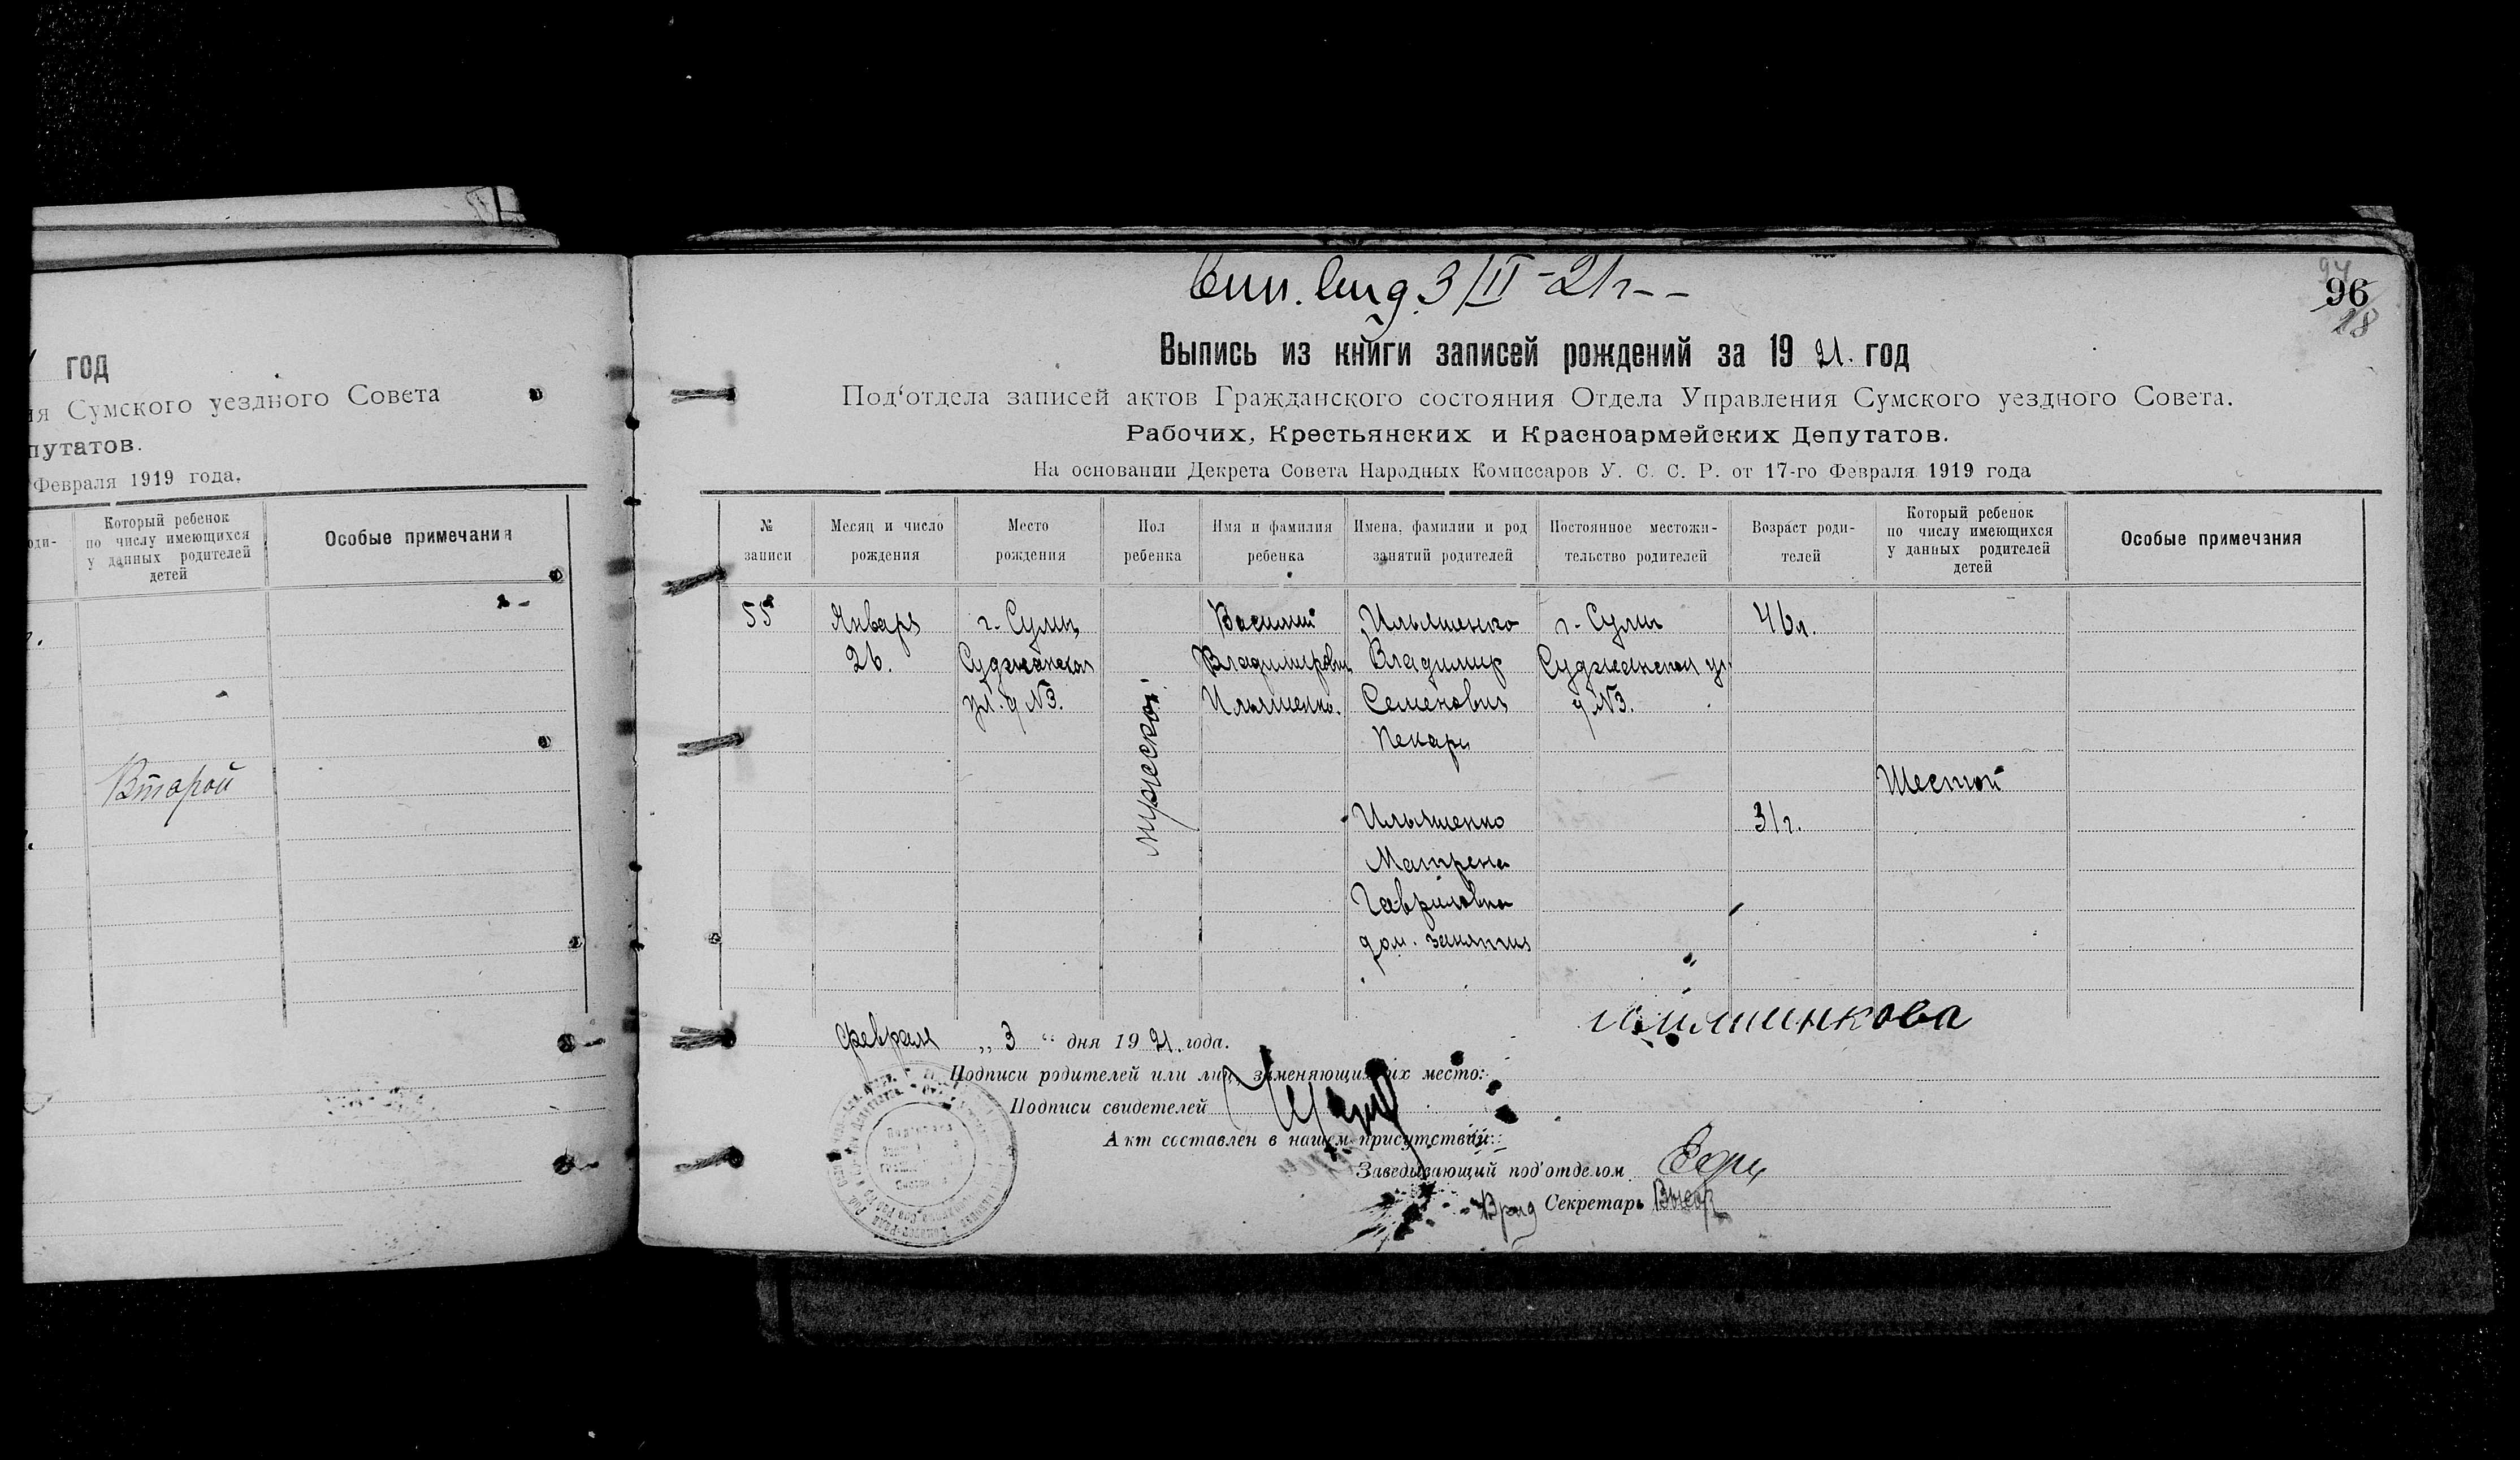 год
Сумского уездного Совета
путатов.
Февраля 1919 года.
Который ребенок
по числу имеющихся
у данных родителей
детей
Особые примечания
Второй
3/II-21г--
96
18
Выпись из книги записей рождений за 19 21. год
Под'отдела записей актов Гражданского состояния Отдела Управления Сумского уездного Совета.
Рабочих, Крестьянских и Красноармейских Депутатов.
На основании Декрета Совета Народных Комиссаров У. С. С. Р. от 17-го Февраля 1919 года
№
записи
Месяц и число
рождения
Место
рождения
Пол
ребенка
Имя и фамилия
ребенка
Имена, фамилии и род
занятий родителей
Постоянное местожи-
тельство родителей
Возраст роди-
телей
Который ребенок
по числу имеющихся
у данных родителей
детей
Особые примечания
55
Январь
26.
г. Сумы
Суджанская
ул. д №3.
мужеской
Василий
Владимирович
Ильяшенко.
Ильяшенко
Владимир
Семенович
Пекарь
Ильяшенко
Матрена
Гавриловна
дом. занятия
г. Сумы
Суджанская ул.
д №3.
46л.
31г.
Шестой
февраля „ 3 “ дня 19 21. года.
Подписи родителей или лиц, заменяющих их место:
Подписи свидетелей
Акт составлен в нашем присутствии:
Заведывающий под'отделом
Врид Секретарь